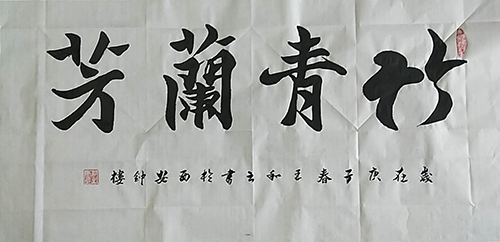 竹青蘭芳
歲在庚子春王和云書於西安鈡樓